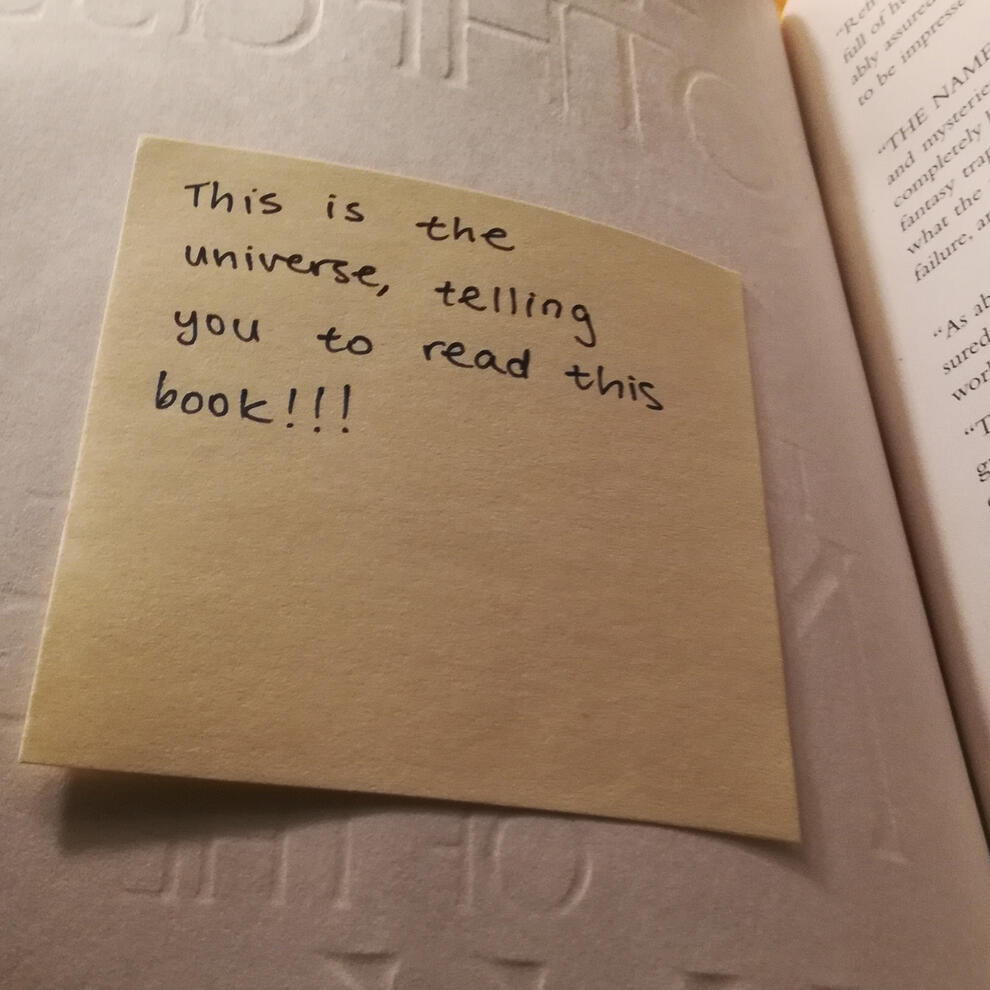 This is the
universe, telling
you to read this
book!!!
full of
ably assured
to be impresse
"THE NAME
and mysterie
completely
fantasy trap
what the
failure, a
"As ab
sured
worl
"T